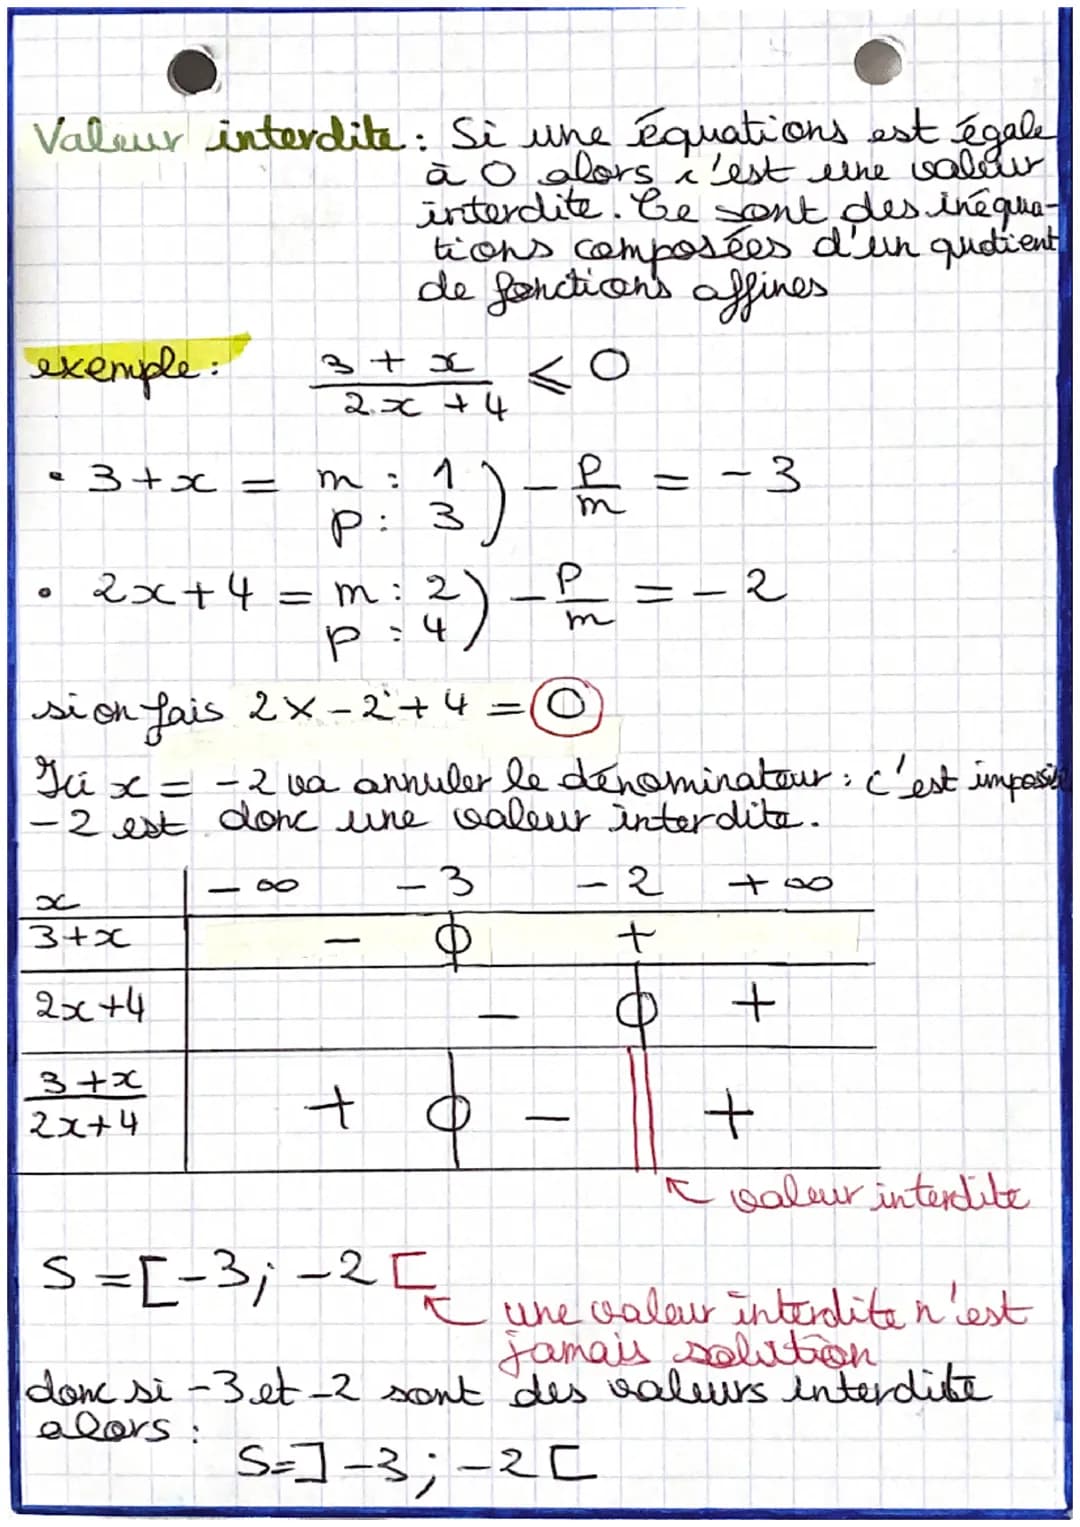 Valeur interdite : Si une équations est égale
à 0 alors c'est une valeur
interdite. Ce sont des inéqua-
tions composées d'un quotient
de fonctions affines
exemple : 3 + x / 2x + 4 ⩽ 0
• 3+x = m : 1 p : 3 ) - p/m = -3
• 2x+4 = m : 2 p : 4 ) - p/m = -2
si on fais 2×-2+4 = 0
Ici x = -2 va annuler le dénominateur : c'est
-2 est donc une valeur interdite.
x -∞ -3 -2 +∞
3+x - 0 +
2x+4 - 0 +
3+x / 2x+4 + 0 - || +
valeur interdite
S = [-3 ; -2 [
une valeur interdite n'est
jamais solution
donc si -3 et -2 sont des valeurs interdite
alors :
S=]-3 ; -2 [